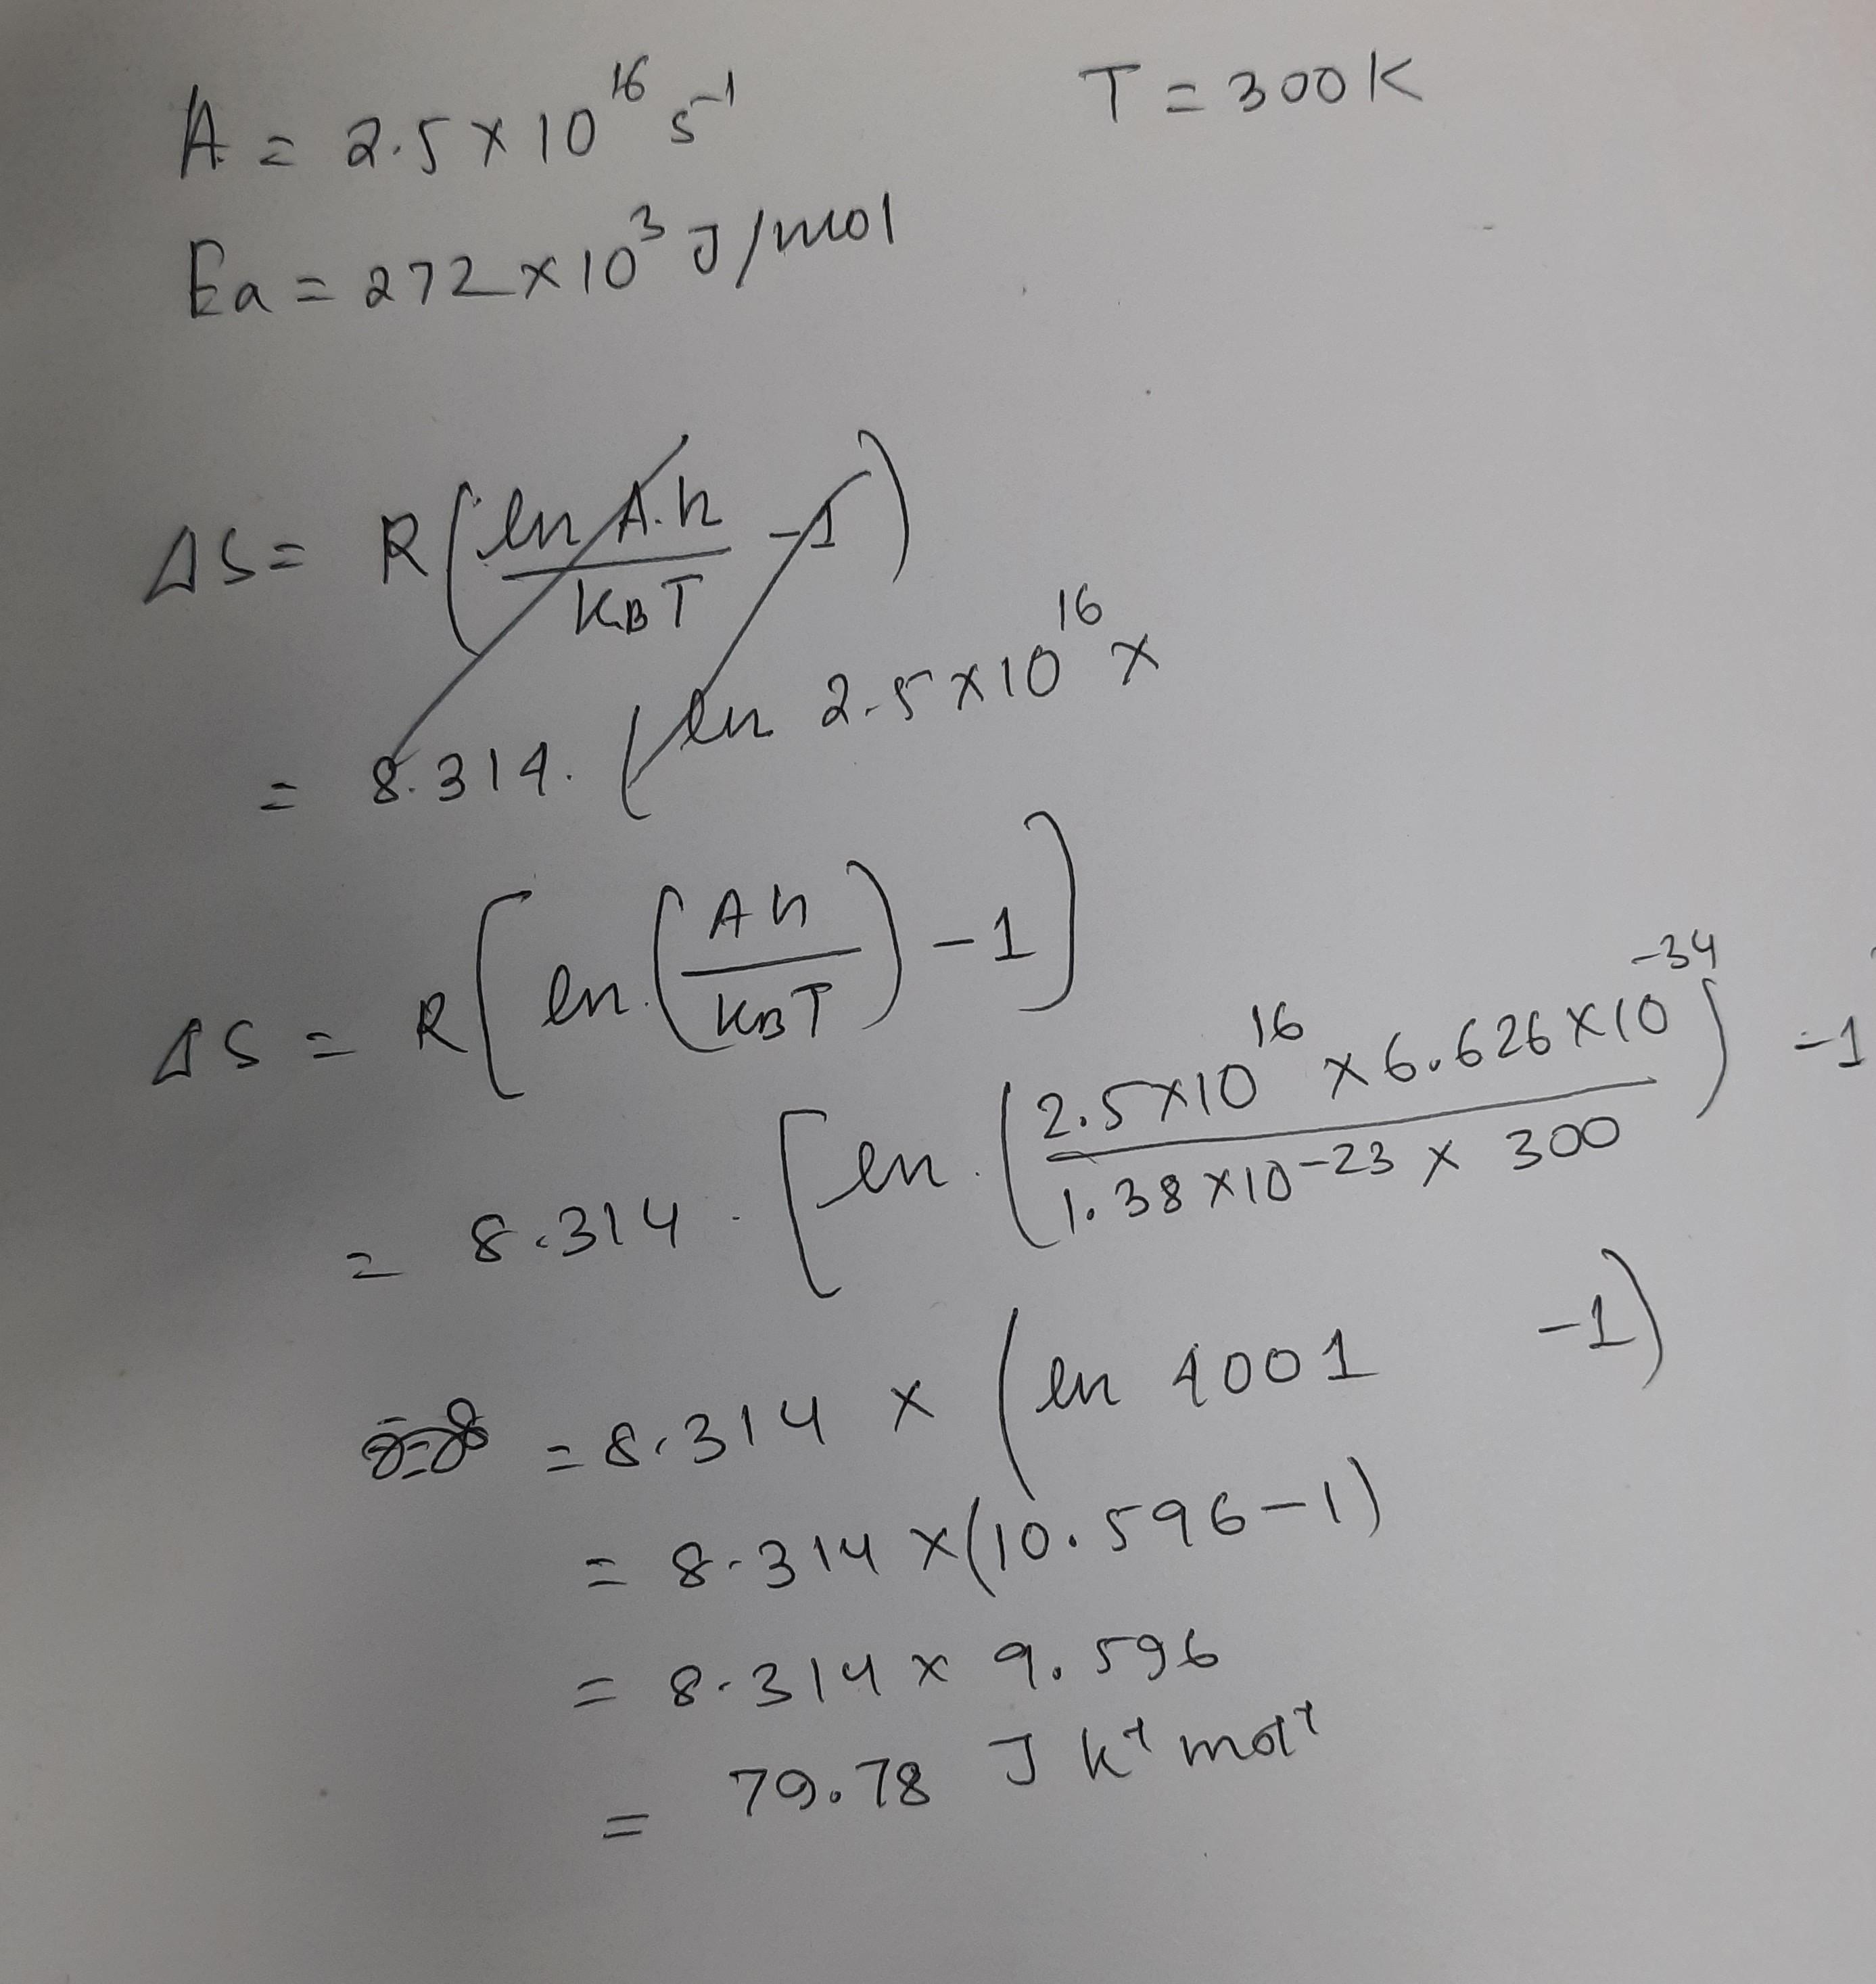 A = 2.5 × 10¹⁶ s⁻¹
T = 300K
Ea = 272 × 10³ J/mol
ΔS = R(ln A.h / KBT - 1)
= 8.314. (ln 2.5 × 10¹⁶ ×
ΔS = R[ln.(Ah / KBT) - 1]
= 8.314 . [ln.(2.5×10¹⁶ × 6.626×10⁻³⁴ / 1.38×10-23 × 300) - 1
= 8.314 × (ln 4001 - 1)
= 8.314 × (10.596-1)
= 8.314 × 9.596
= 79.78 J K⁻¹ mol⁻¹